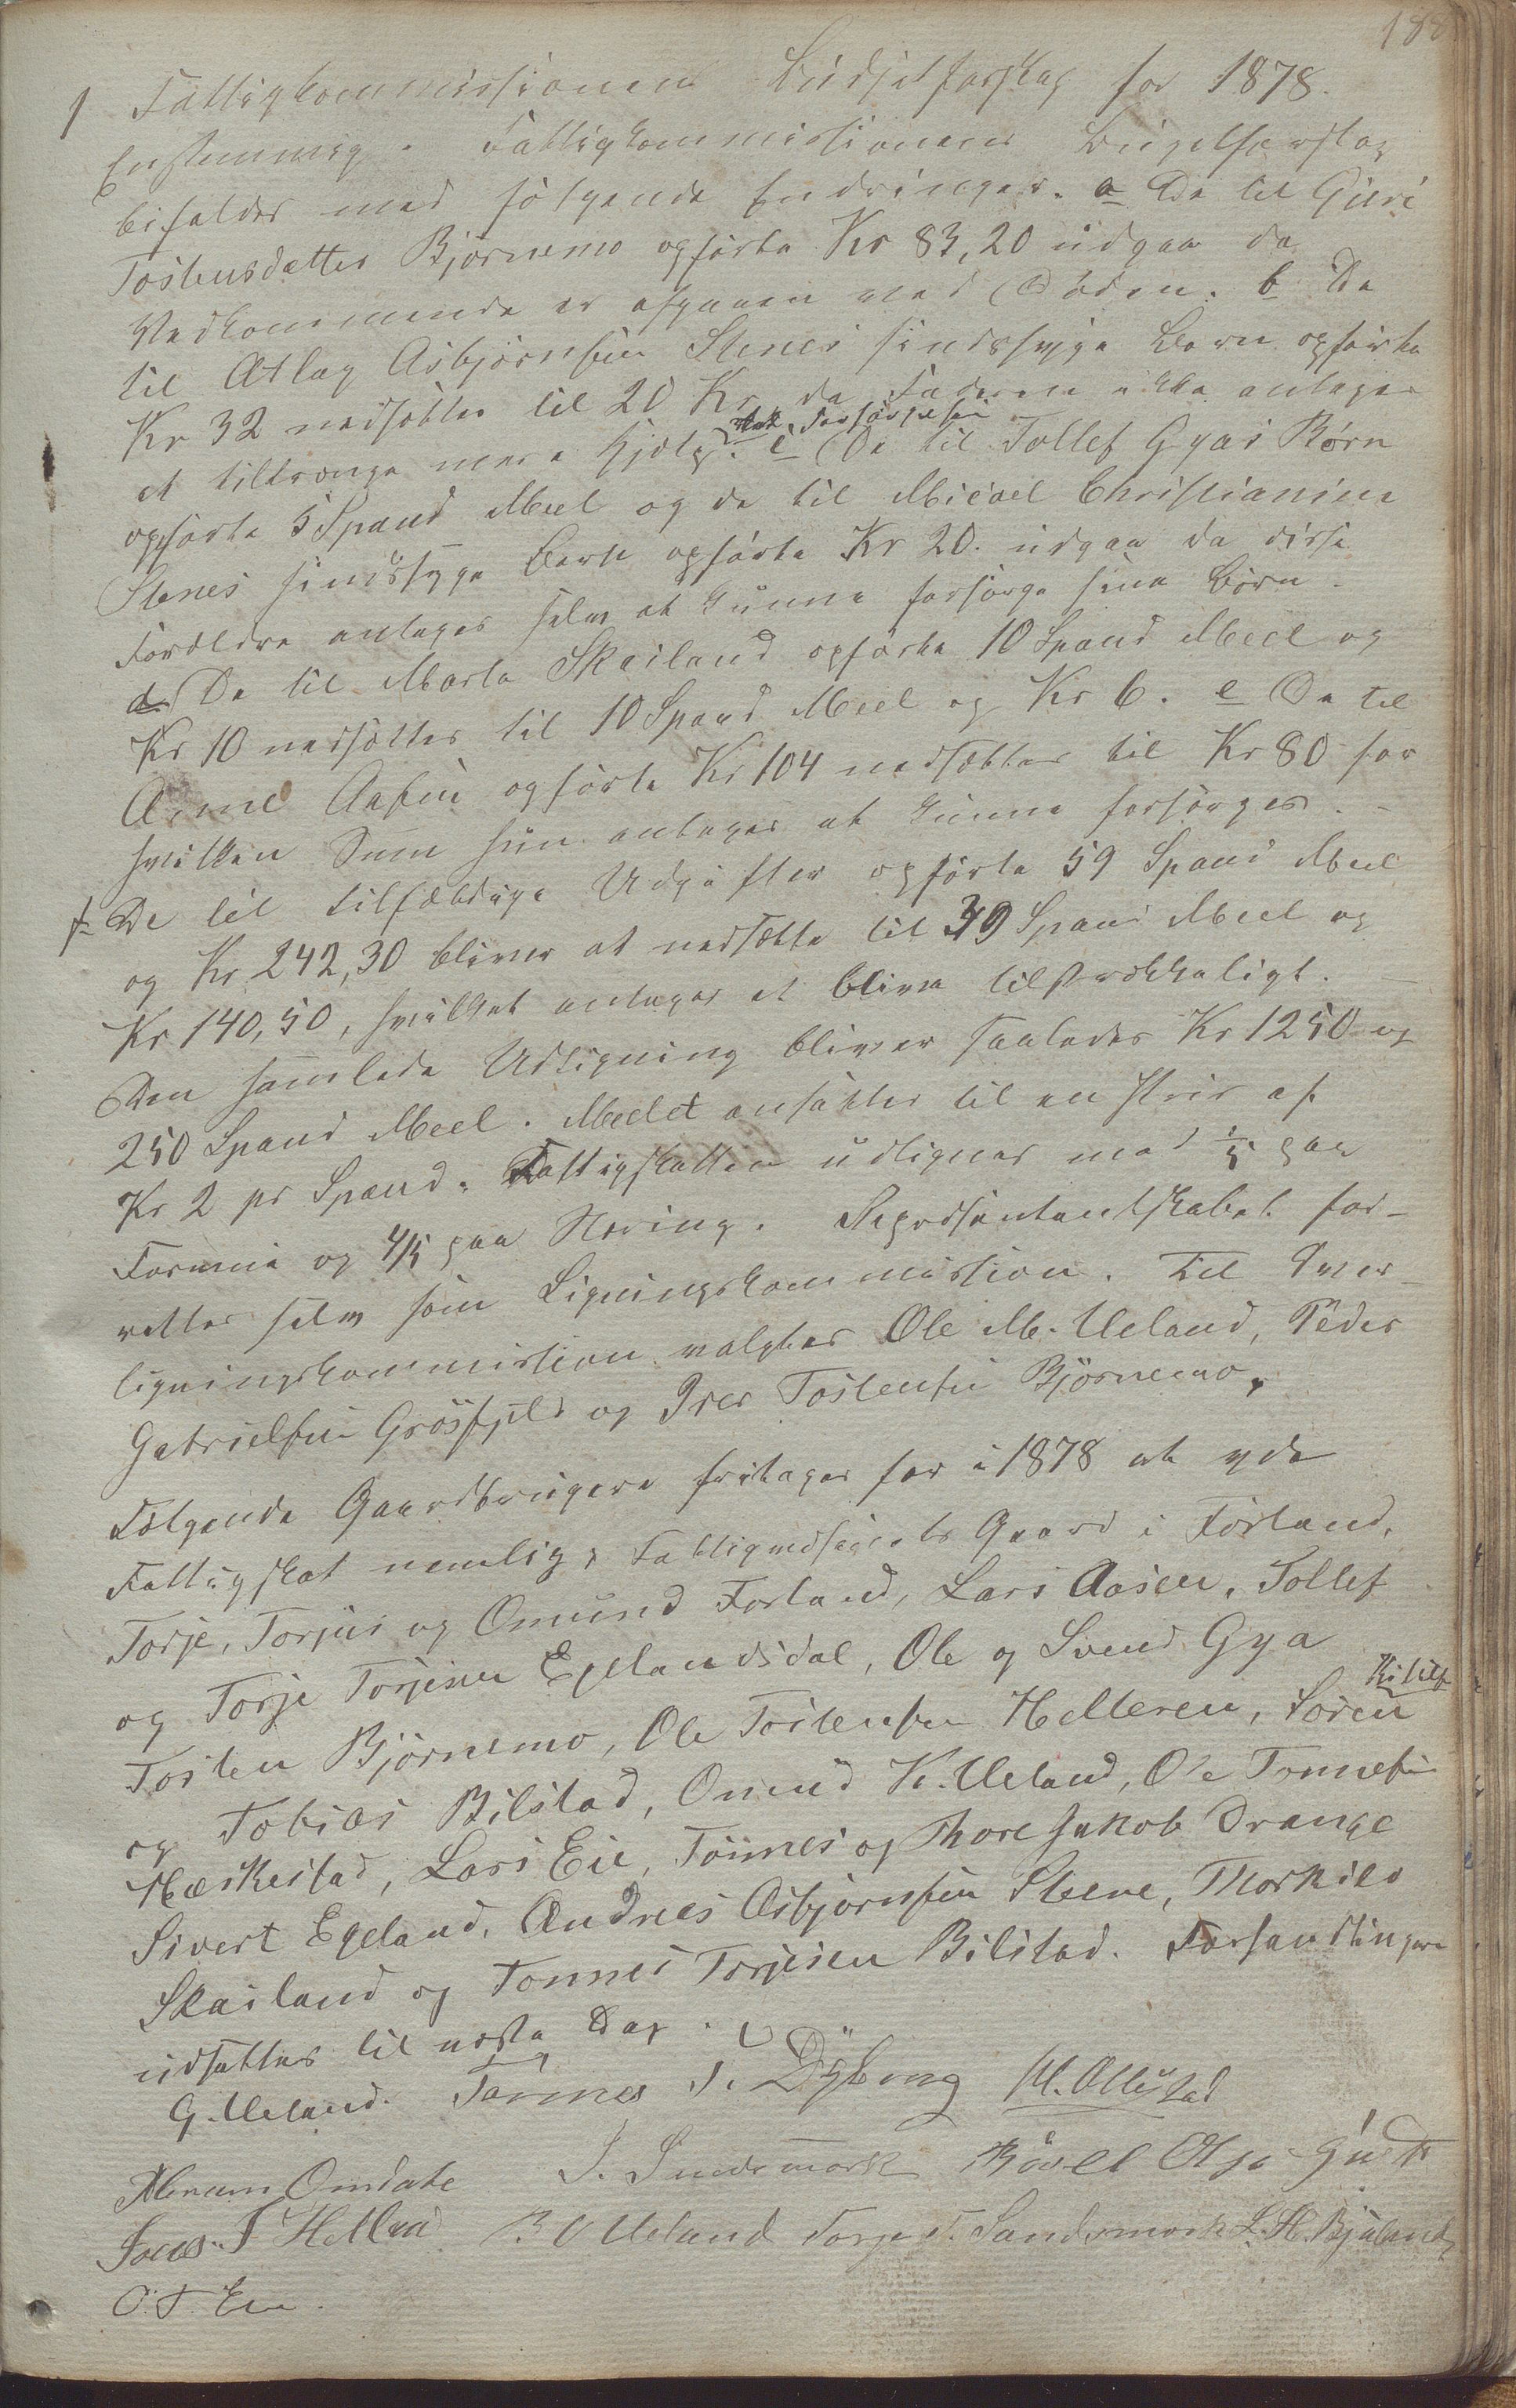 188
1 Fattigkommissionens Budjetforslag for 1878.
Enstemmig. Fattigkommissionens Budjetforslag
bifaldes med følgende Endringer. a De til Guri
Tostensdatter Bjørnemo opførte Kr 83,20 udgaar da
Vedkommende er afgaaen ved Døden. b De
til Atlag Asbjørnsen Stenes sindssyge Barn opførte
Kr 32 nedsættes til 20 Kr da Faderen ikke antages
at tiltrænge mere Hjælp til Forsørgelsen. c De til Tollef Gyas Børn
opførte 5 Spand Meel og de til Micael Christianine
Stenes sindssyge Barn opførte Kr 20. udgaa da disse
Forældre antages selv at kunne forsørge sine Børn.
d. De til Marta Skailand opførte 10 Spand Meel og
Kr 10 nedsættes til 10 Spand Meel og Kr 6. e De til
Anne opførte Kr 104 nedsættes til Kr 80 for
hvilken Sum hun antages at kunne forsørges. -
f De til tilfældige Udgifter opførte 59 Spand Meel
og Kr 242,30 bliver at nedsætte til 39 Spand Meel og
Kr 140,50, hvilket antages at blive tilstrækkeligt. -
Den samlede Udligning bliver saaledes Kr 1250 og
250 Spand Meel. Meelet ansættes til en Pris af
Kr 2 pr Spand. Fattigskatten udlignes med 1/5 paa
Formue og 4/5 paa Næring. Repræsentantskabet for-
retter selv som Ligningskommission. Til Over-
ligningskommission valgtes Ole M. Ueland, Peder
Gabrielsen Grøsfjeld og Iver Tostensen Bjørnemo.
Følgende Gaardbrugere fritages for i 1878 at yde
Fattigskat nemlig; Fattigvæsenets Gaard i Førland,
Torje, Torjus og Omund Førland, Lars Aasen, Tollef
og Torje Torjesen Egelandsdal, Ole og Svend Gya
Tosten Bjørnemo, Ole Tostensen Helleren, Søren Kitilf
og Tobias Bilstad, Omund K. Ueland, Ole Tonnesen
Hæskestad, Lars Eie, Tønnes og Thore Jakob Drange
Sivert Egeland, Andreas Asbjørnsen Steene, Thorkild
Skailand og Tonnes Torjesen Bilstad. Forhandlingerne
udsættes til næste Dag.
G. Ueland. Tønnes T. Dybing M. Ollestad
Abram Omdale S. Sandsmark
Jonas T Hellvad B O Ueland Torje T. Sandsmark L. H. Bjuland
O. T. Eie.